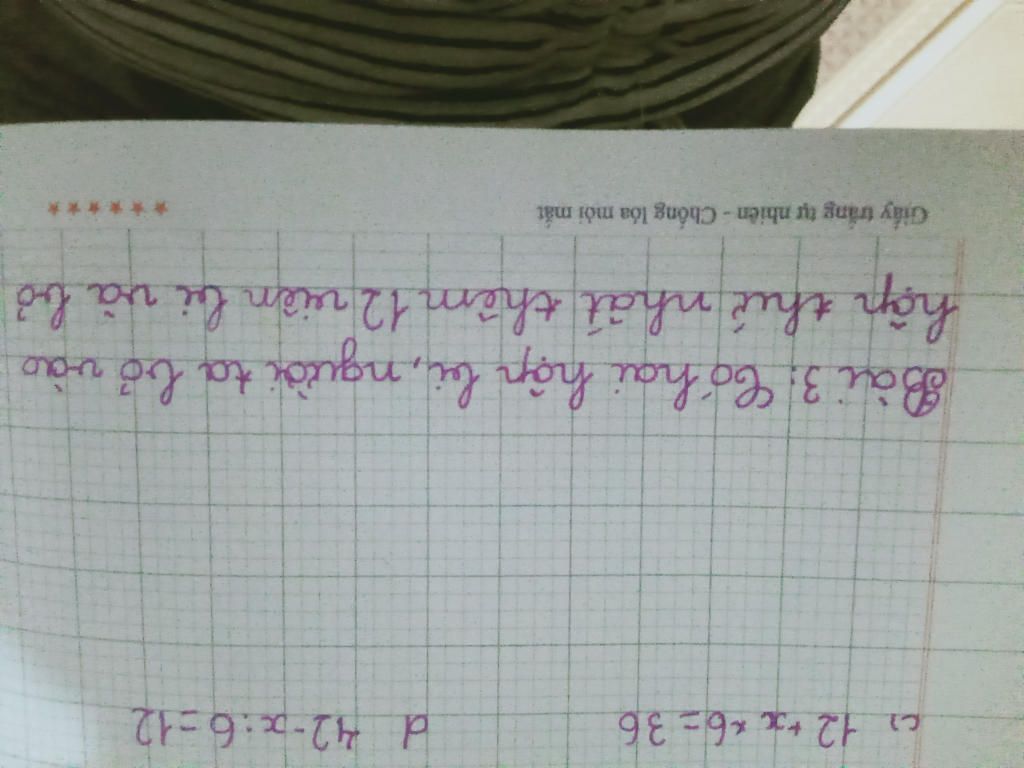 c) 12 + x × 6 = 36 d 42 - x : 6 = 12
Bài 3: Có hai hộp bi, người ta bỏ vào
hộp thứ nhất thêm 12 viên bi và bỏ
Giấy trắng tự nhiên - Chống lóa mỏi mắt